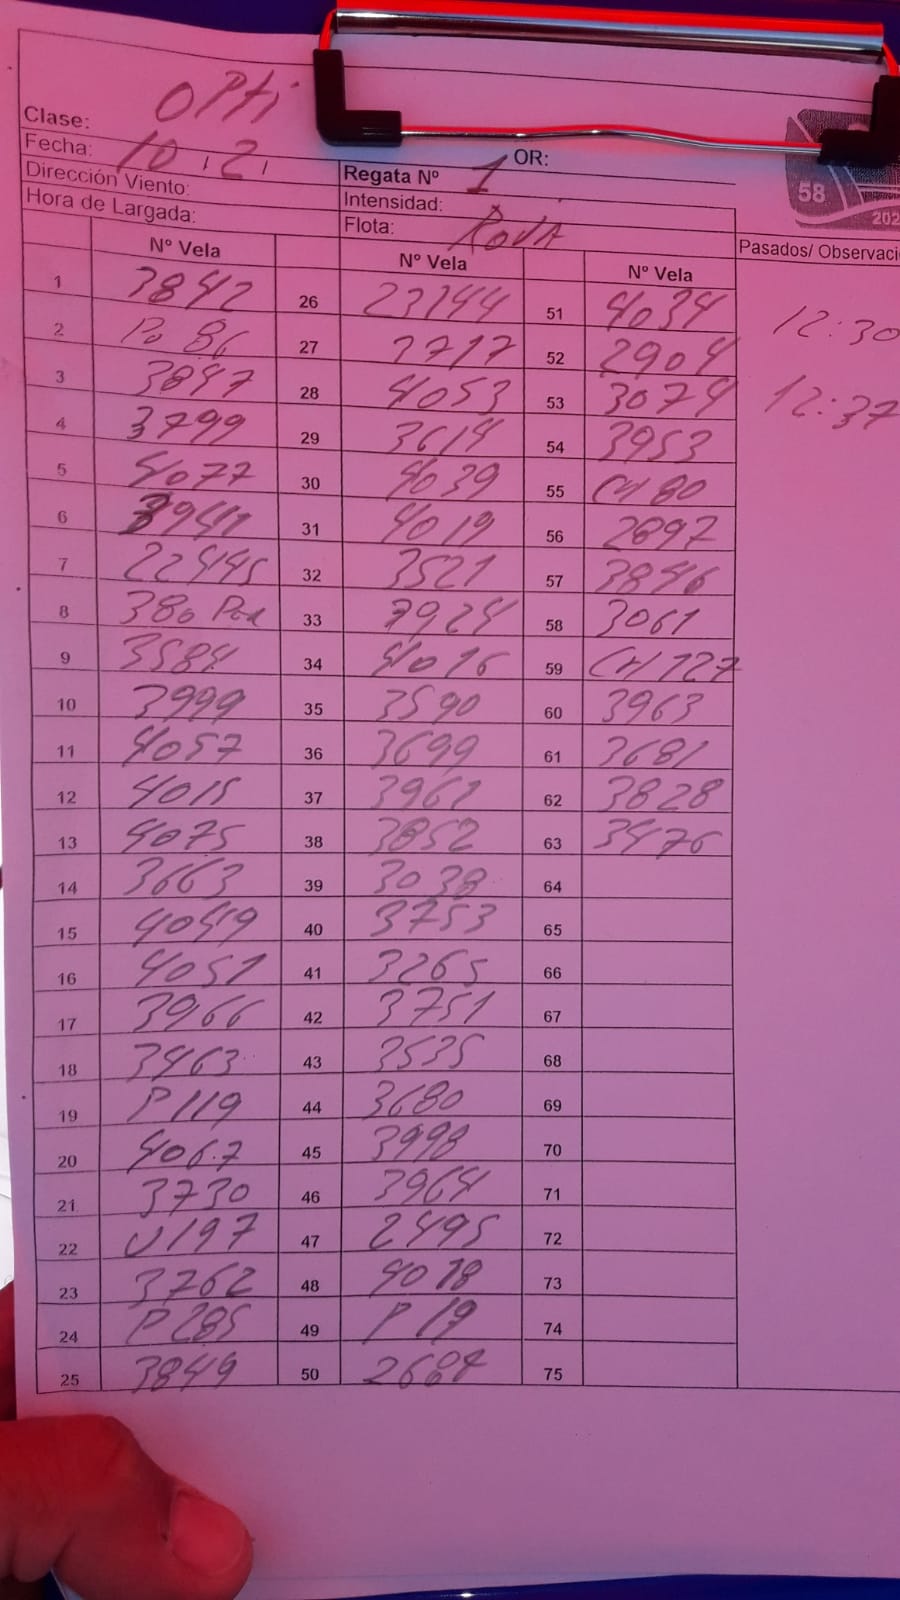 Clase: OPti
Fecha: 10.2.
OR:
Dirección Viento:
Regata Nº 1
Hora de Largada:
Intensidad:
Flota: ROJA
58
202
Nº Vela Nº Vela Nº Vela Pasados/ Observaci
1 3842 26 23144 51 4034 12:30
2 Po 86 27 3717 52 2904
3 3847 28 4053 53 3074 12:37
4 3799 29 3614 54 3953
5 4077 30 4039 55 CH 80
6 3941 31 4019 56 2897
7 22445 32 3521 57 3846
8 380 33 3924 58 3061
9 3584 34 4016 59 CH 127
10 3999 35 3590 60 3963
11 4057 36 3699 61 3681
12 4015 37 3961 62 3828
13 4075 38 3852 63 3476
14 3663 39 3038 64
15 4049 40 3753 65
16 4051 41 3265 66
17 3966 42 3751 67
18 3463 43 3535 68
19 P 119 44 3680 69
20 4067 45 3998 70
21 3730 46 3964 71
22 U 197 47 2495 72
23 3762 48 4018 73
24 P 285 49 P 19 74
25 3849 50 75